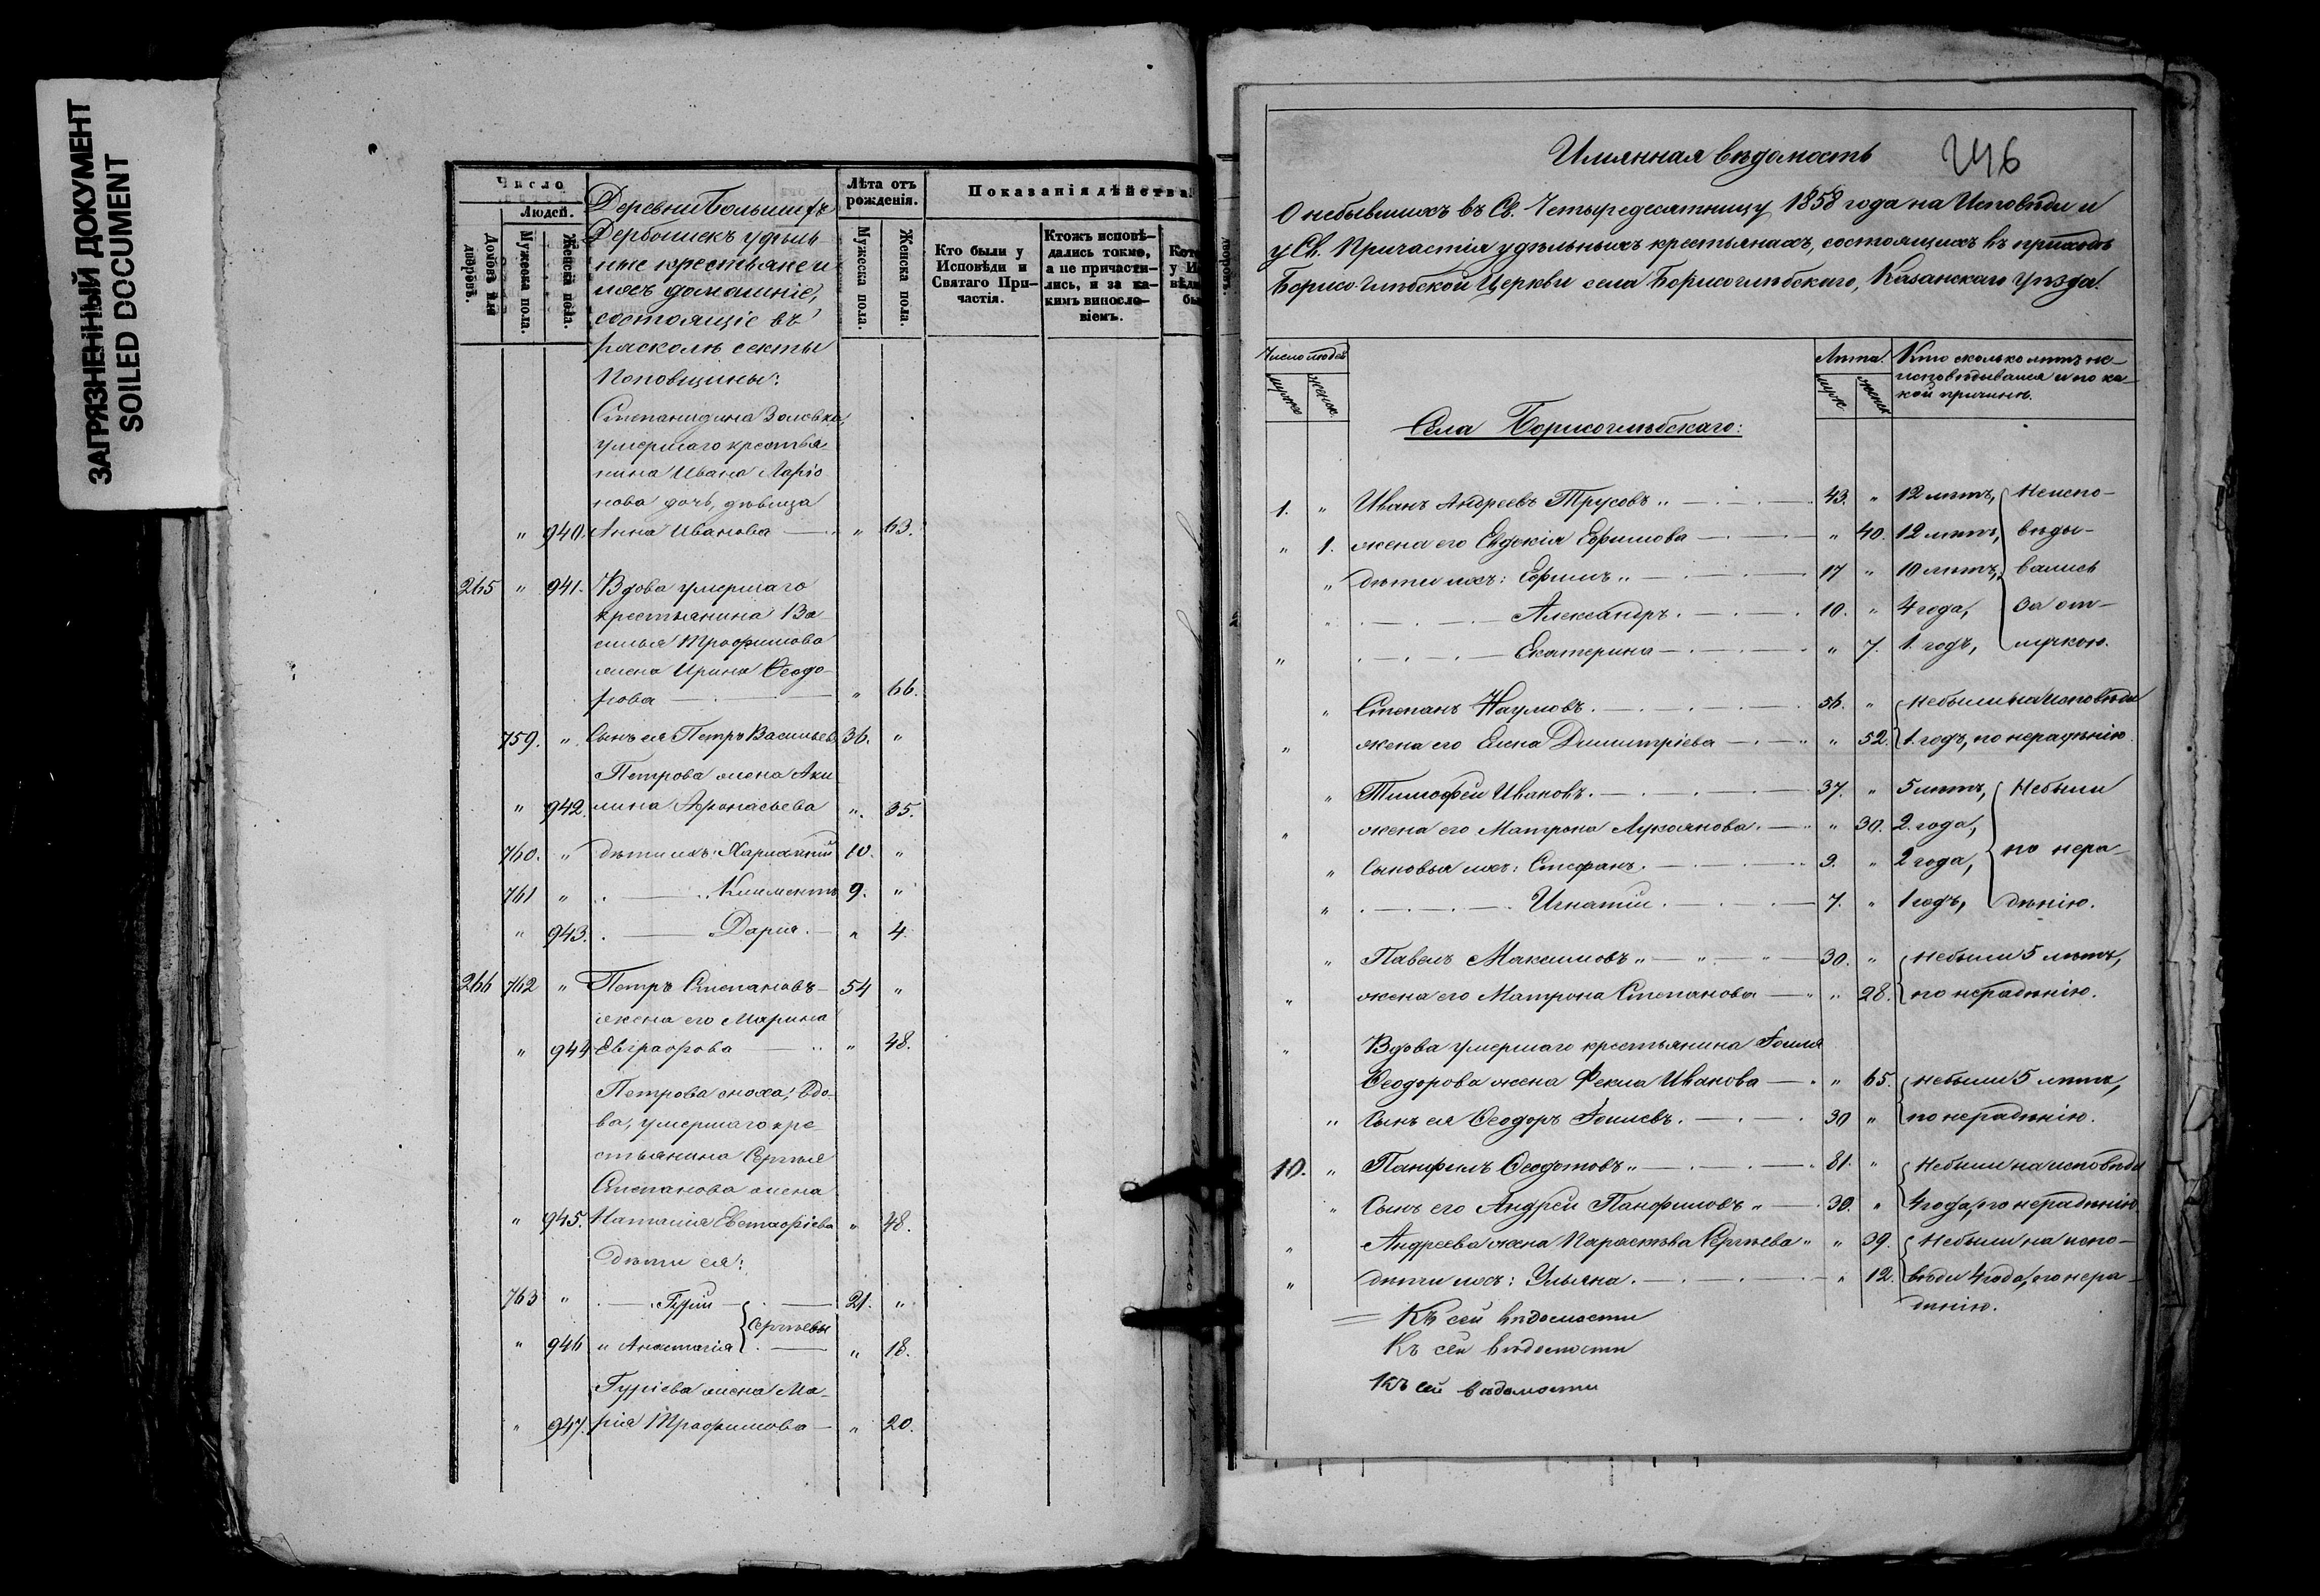 ЗАГРЯЗНЕННЫЙ ДОКУМЕНТ
SOILED DOCUMENT
Число
Людей.
Домовъ или дворовъ.
Мужеска пола.
Женска пола.
Деревни Большихъ
Дербышекъ удѣль
ные крестьяне и
ихъ домашніе,
состоящіе въ
расколѣ секты
Поповщины:
Лѣта отъ рожденія.
Мужеска пола.
Женска пола.
Показанія дѣйства
Кто были у Исповѣди и Святаго При-частія.
Ктожъ исповѣ-дались токмо, а не причасти-лись, и за ка-кимъ винословіемъ.
Степанидина Золовка,
умершаго крестья
нина Ивана Ларіо
нова дочь, дѣвица
" 940. Анна Иванова " 63.
265 " 941. Вдова умершаго
крестьянина Ва
силья Трофимова
жена Ирина Ѳеодо
рова " 66.
759. " Сынъ ея Петръ Васильев 36. "
Петрова жена Аки
" 942. лина Афонасьева " 35.
760. " дѣти ихъ: 10. "
761 " Климентъ 9. "
" 943. Дарья " 4.
266 762 " Петръ Степановъ 54 "
жена его Марина
" 944 Евграфова " 48.
Петрова сноха, вдо
ва, умершаго кре
стьянина Сергѣя
Степанова жена
" 945. Наталія Евстафіева " 48.
Дѣти ея:
763 " Гурій 21. "
Сергѣевы
" 946 " Анастасія " 18.
Гуріева жена Ма-
" 947. рія Трофимова " 20.
246
Имянная вѣдомость
О небывшихъ въ Св. Четыредесятницу 1858 года на Исповѣди и
у Св. Причастія удѣльныхъ крестьянахъ, состоящихъ въ приходѣ
Борисо-глѣбской Церкви села Борисоглѣбскаго, Казанскаго уѣзда.
Число людей
мужеск
женск.
Лѣта
муж
женск
Кто сколько лѣтъ не-
исповѣдывался и по ка-
кой причинѣ.
Села Борисоглѣбскаго:
1. " Иванъ Андреевъ Трусовъ 43. " 12 лѣтъ, Неиспо-
" 1. жена его Евдокія Ефимова " 40. 12 лѣтъ, вѣды-
" дѣти ихъ: Ефимъ 17 " 10 лѣтъ, вались
" Александръ 10. " 4 года, За от-
" Екатерина " 7. 1 годъ, лучкою.
" Степанъ Наумовъ 56. " Небыли на исповѣди
" жена его Елена Димитріева " 52. 1. годъ, по нерадѣнію.
" Тимофей Ивановъ 37. " 5 лѣтъ, Небыли
" жена его Матрона Лукоянова " 30. 2. года,
" Сыновья ихъ: Стефанъ 9. " 2 года, по нера-
" Игнатій 7. " 1 годъ, дѣнію.
" Павелъ Максимовъ 30. " Небыли 5 лѣтъ,
" жена его Матрона Степанова " 28. по нерадѣнію.
" Вдова умершаго крестьянина Гоилія
Ѳеодорова жена Фекла Иванова " 65. Небыли 5 лѣтъ,
" Сынъ ея Ѳеодоръ 30 " по нерадѣнію.
10. " Панфилъ Ѳеодотовъ 81. " Небыли на исповѣди
" Сынъ его Андрей Панфиловъ 30. " 4 года, по нерадѣнію.
" Андреева жена Параскѣва Сергѣева " 39. Небыли на испо-
" дѣти ихъ: Ульяна " 12. вѣди 4 года, по нера-
дѣнію.
Къ сей вѣдомости
Къ сей вѣдомости
Къ сей вѣдомости